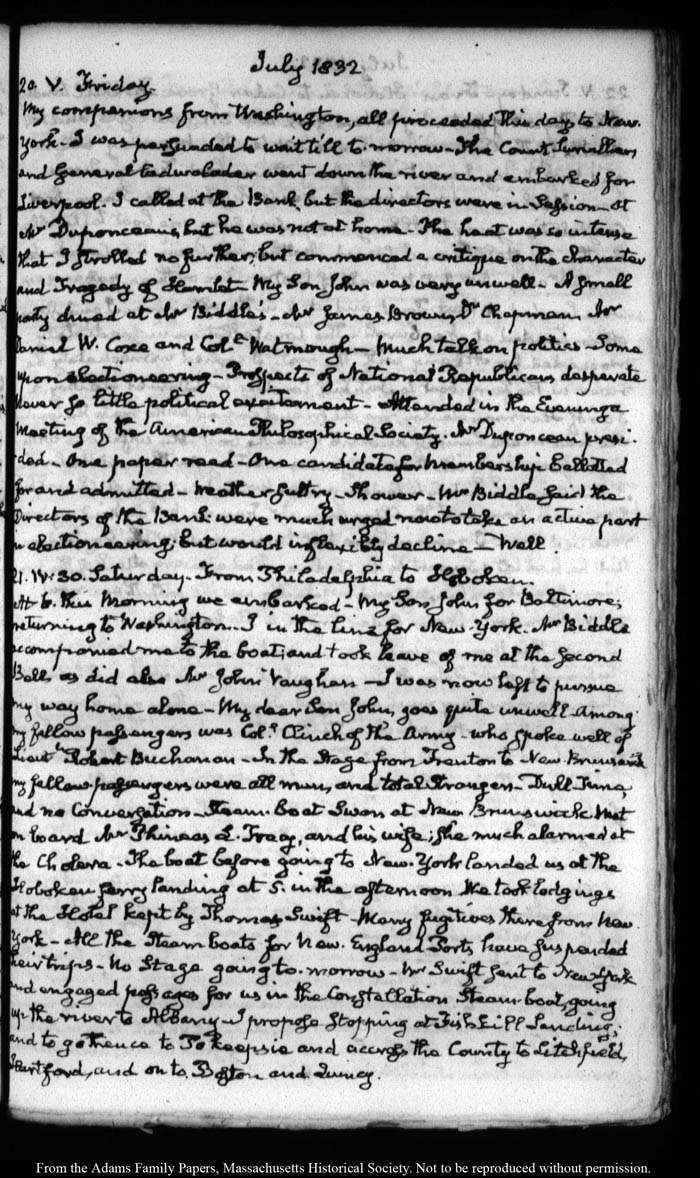 July 1832
20. V. Friday.
My companions from Washington, all proceeded this day to New-
York - I was persuaded to wait till to-morrow - The Count
and General Cadwalader went down the river and embarked for
Liverpool. I called at the Bank, but the directors were in Session - at
Mr Duponceau's, but he was not at home - The heat was so intense
that I strolled no further; but commenced a critique on the character
and Tragedy of Hamlet - My Son John was very unwell - A small
party dined at Mr Biddle's - Mr James Brown, Dr Chapman, Mr
Daniel W. Coxe and Col.l Watmough - Much talk on politics - Some
upon electioneering - Prospects of National Republicans desperate
Never so little political excitement - Attended in the Evening a
Meeting of the American Philosophical Society. Mr Duponceau presi-
ded - One paper read - One candidate for Membership balloted
for and admitted - Weather sultry - Shower - Mr Biddle said the
Directors of the Bank were much urged now to take an active part
in electioneering; but would inflexibly decline - Well.
21. IV:30. Saturday - From Philadelphia to Hoboken.
At 6. this Morning we embarked - My Son John for Baltimore;
returning to Washington - I in the line for New-York. Mr Biddle
accompanied me to the boat; and took leave of me at the second
Bell, as did also Mr John Vaughan - I was now left to pursue
my way home alone - My dear Son John, goes quite unwell. Among
my fellow passengers was Col.l Clinch of the Army - who spoke well of
Lieutt Robert Buchanan - In the Stage from Trenton to New Brunswick
my fellow passengers were all men, and total Strangers - Dull Time,
and no Conversation - Steam-Boat Swan at New Brunswick. Met
on board Mr Phineas L. Tracy, and his wife; she much alarmed at
the Cholera - The boat before going to New-York landed us at the
Hoboken ferry landing at 5. in the afternoon We took lodgings
at the Hotel kept by Thomas Swift - Many fugitives there from New
York - All the Steam boats for New-England Ports have suspended
their trips - No Stage going to-morrow - Mr Swift sent to New York
and engaged passages for us in the Constellation Steam-boat, going
up the river to Albany - I propose stopping at Fishkill Landing;
and to go thence to Pokeepsie and across the County to Litchfield,
Hartford, and on to Boston and Quincy.
From the Adams Family Papers, Massachusetts Historical Society. Not to be reproduced without permission.